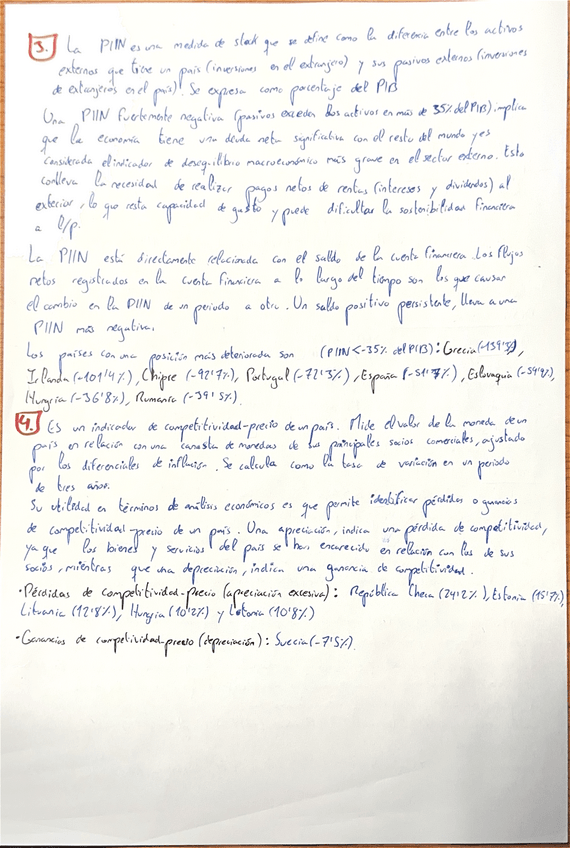 3. La PIIN es una medida de stock que se define como la diferencia entre los activos
externos que tiene un país (inversiones en el extranjero) y sus pasivos externos (inversiones
de extranjeros en el país). Se expresa como porcentaje del PIB
Una PIIN fuertemente negativa (pasivos exceden los activos en más de 35% del PIB) implica
que la economía tiene una deuda neta significativa con el resto del mundo y es
considerada el indicador de desequilibrio macroeconómico más grave en el sector externo. Esto
conlleva la necesidad de realizar pagos netos de rentas (intereses y dividendos) al
exterior, lo que resta capacidad de gasto y puede dificultar la sostenibilidad financiera
a l/p.
La PIIN está directamente relacionada con el saldo de la cuenta financiera. Los flujos
netos registrados en la cuenta financiera a lo largo del tiempo son los que causan
el cambio en la PIIN de un periodo a otro. Un saldo positivo persistente, lleva a una
PIIN más negativa.
Los países con una posición más deteriorada son (PIIN<-35% del PIB): Grecia (-139'3%),
Irlanda (-101'4%), Chipre (-92'7%), Portugal (-72'3%), España (-51'7%), Eslovaquia (-59'9%),
Hungría (-36'8%), Rumanía (-39'5%).
4. Es un indicador de competitividad-precio de un país. Mide el valor de la moneda de un
país en relación con una canasta de monedas de sus principales socios comerciales, ajustado
por los diferenciales de inflación. Se calcula como la tasa de variación en un periodo
de tres años.
Su utilidad en términos de análisis económicos es que permite identificar pérdidas o ganancias
de competitividad-precio de un país. Una apreciación, indica una pérdida de competitividad,
ya que los bienes y servicios del país se han encarecido en relación con los de sus
socios, mientras que una depreciación, indica una ganancia de competitividad.
·Pérdidas de competitividad-precio (apreciación excesiva): República Checa (24'2%), Estonia (15'7%),
Lituania (12'8%), Hungría (10'2%) y Letonia (10'8%)
·Ganancias de competividad-precio (depreciación): Suecia (-7'5%).